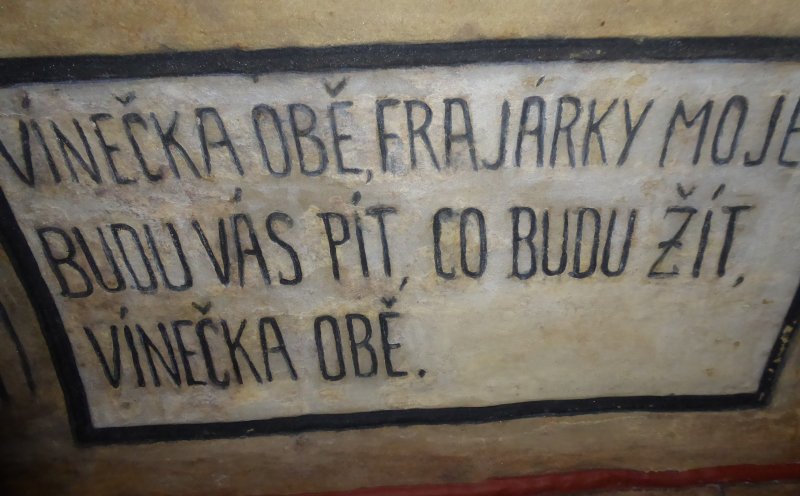 VÍNEČKA OBĚ, FRAJÁRKY MOJE
BUDU VÁS PÍT, CO BUDU ŽÍT,
VÍNEČKA OBĚ.